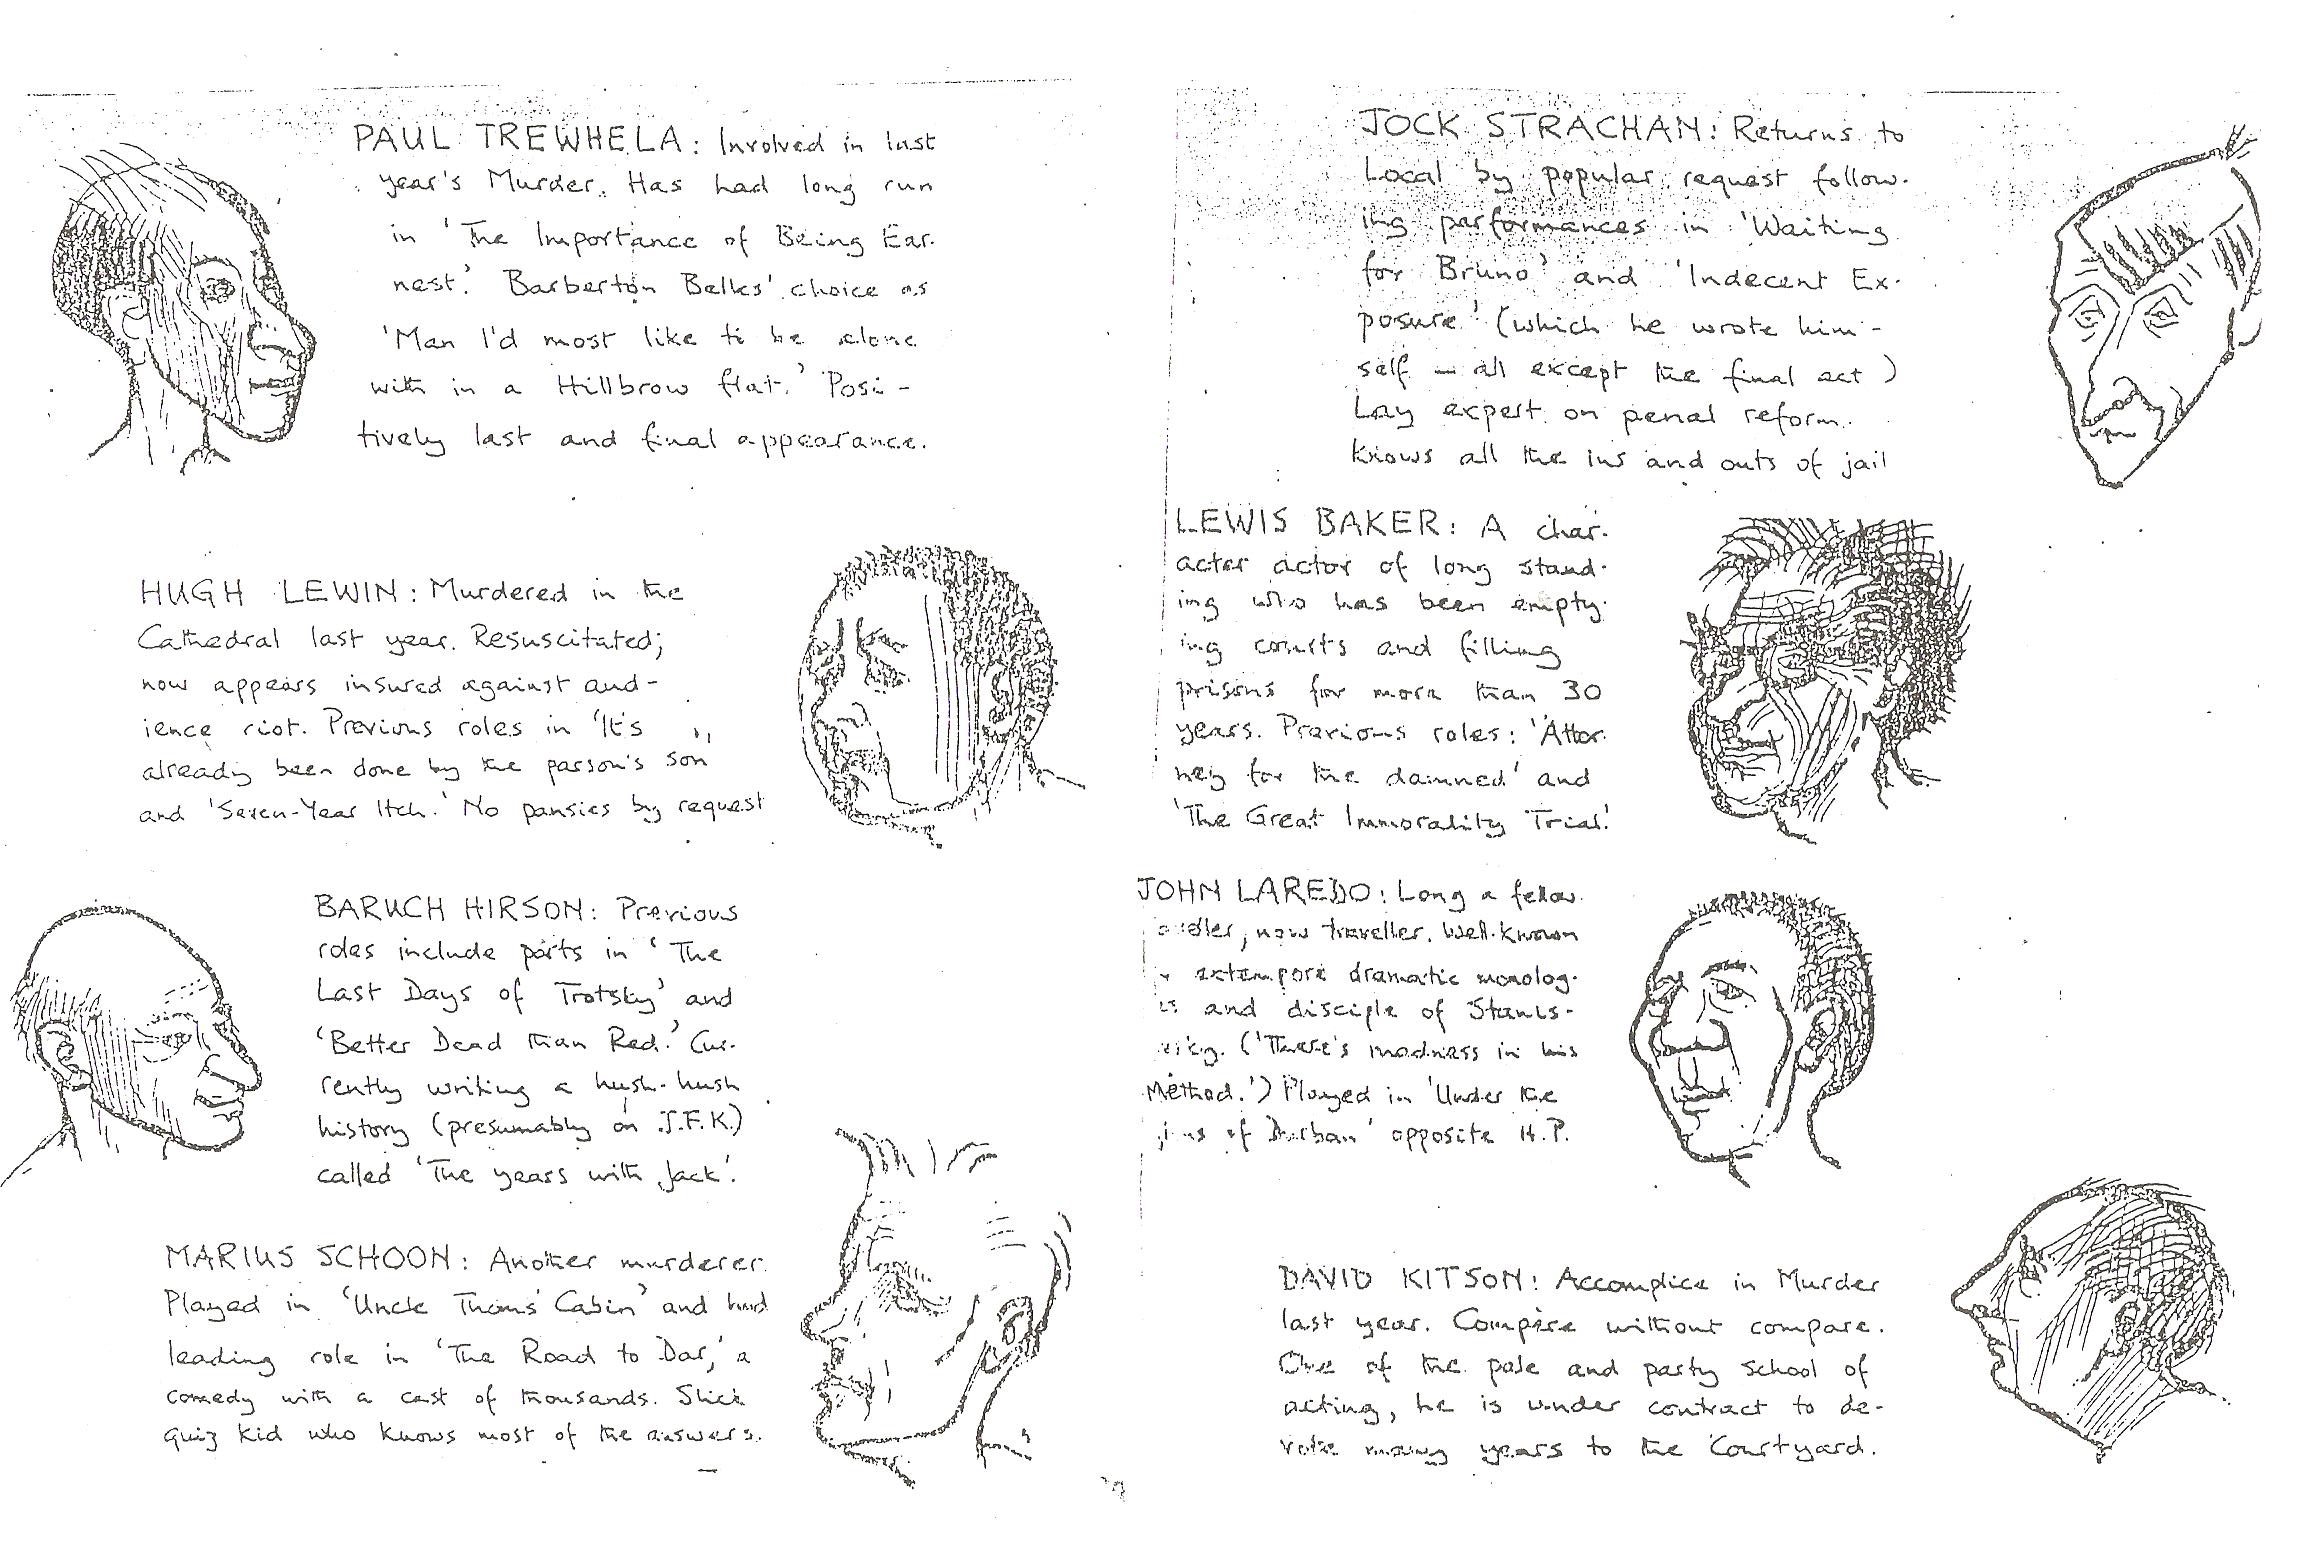 PAUL TREWHELA: Involved in last
year's Murder. Has had long run
in 'The Importance of Being Ear-
nest.' Barberton Belles' choice as
'Man I'd most like to be alone
with in a Hillbrow flat.' Posi-
tively last and final appearance.
HUGH LEWIN: Murdered in the
Cathedral last year. Resuscitated;
now appears insured against aud-
ience riot. Previous roles in 'It's
already been done by the parson's son
and 'Seven-Year Itch.' No pansies by request
BARUCH HIRSON: Previous
roles include parts in 'The
Last Days of Trotsky' and
'Better Dead than Red.' Cur-
rently writing a hush-hush
history (presumably on J.F.K.)
called 'The years with Jack'.
MARIUS SCHOON: Another murderer.
Played in 'Uncle Thoms' Cabin' and had
leading role in 'The Road to Dar,' a
comedy with a cast of thousands. Slick
quiz kid who knows most of the answers.
JOCK STRACHAN: Returns to
Local by popular request follow-
ing performances in 'Waiting
for Bruno' and 'Indecent Ex-
posure' (which he wrote him-
self - all except the final act)
Lay expert on penal reform.
Knows all the ins and outs of jail
LEWIS BAKER: A char-
acter actor of long stand-
ing who has been empty-
ing courts and filling
prisons for more than 30
years. Previous roles: 'Attor-
ney for the damned' and
'The Great Immorality Trial.'
JOHN LAREDO: Long a fellow
now traveller. Well-known
extempore dramatic monolog-
and disciple of Stanis-
('There's madness in his
Method.') Played in 'Under the
of Durban' opposite H.P.
DAVID KITSON: Accomplice in Murder
last year. Compère without compare.
One of the pale and party school of
acting, he is under contract to de-
vote many years to the Courtyard.